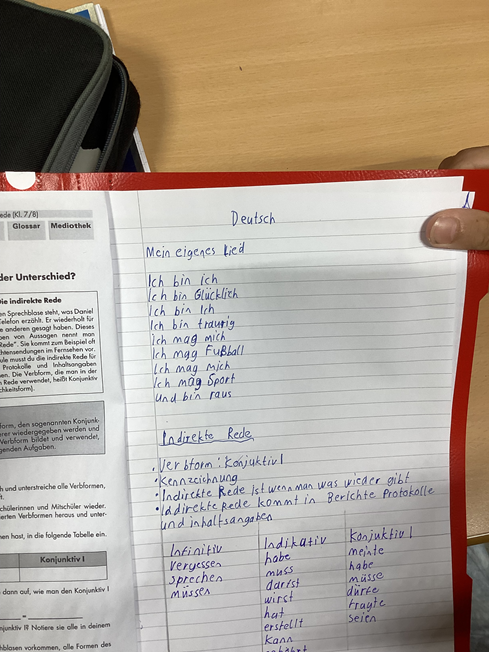 ede (Kl. 7/8)
Glossar Mediothek
der Unterschied?
Die indirekte Rede
en Sprechblase steht, was Daniel
elefon erzählt. Er wiederholt für
e anderen gesagt haben. Dieses
ben von Aussagen nennt man
Rede". Sie kommt zum Beispiel oft
chtensendungen im Fernsehen vor.
ule musst du die indirekte Rede für
Protokolle und Inhaltsangaben
en. Die Verbform, die man in der
n Rede verwendet, heißt Konjunktiv
chkeitsform).
form, den sogenannten Konjunk-
erer wiedergegeben werden und
Verbform bildet und verwendet,
genden Aufgaben.
h und unterstreiche alle Verbformen,
t.
chülerinnen und Mitschüler wieder.
erten Verbformen heraus und unter-
en hast, in die folgende Tabelle ein.
Konjunktiv I
dann auf, wie man den Konjunktiv I
njunktiv I? Notiere sie alle in deinem
blasen vorkommen, alle Formen des
Deutsch
Mein eigenes Lied
Ich bin ich
Ich bin Glücklich
Ich bin Ich
Ich bin traurig
Ich mag mich
Ich mag Fußball
Ich mag mich
Ich mag Sport
und bin raus
Indirekte Rede
• Verbform: Konjuktiv I
• Kennzeichnung
• Indirekte Rede Ist wenn man was wieder gibt
• Indirekte Rede kommt in Berichte Protokolle
und inhaltsangaben
Infinitiv Indikativ Konjuktiv I
Vergessen habe meinte
sprechen muss habe
müssen darfst müsse
wirst dürke
hat fragte
erstellt seien
kann